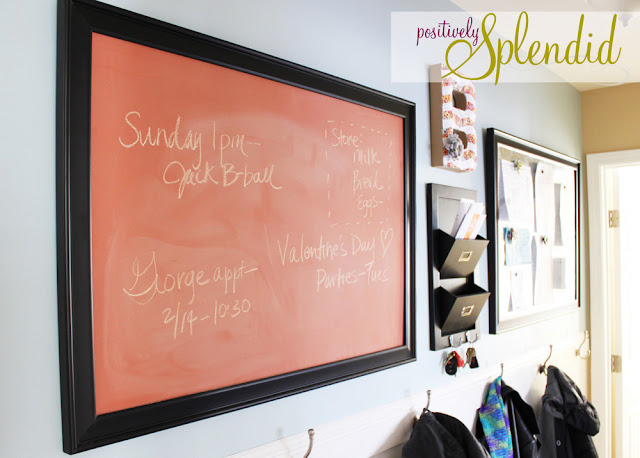 positively
Splendid
Sunday 1pm--
Jack B-ball
Store:
Milk
Bread
Eggs-
Valentine's Day ♡
Parties-Tues
George appt-
2/14-10:30